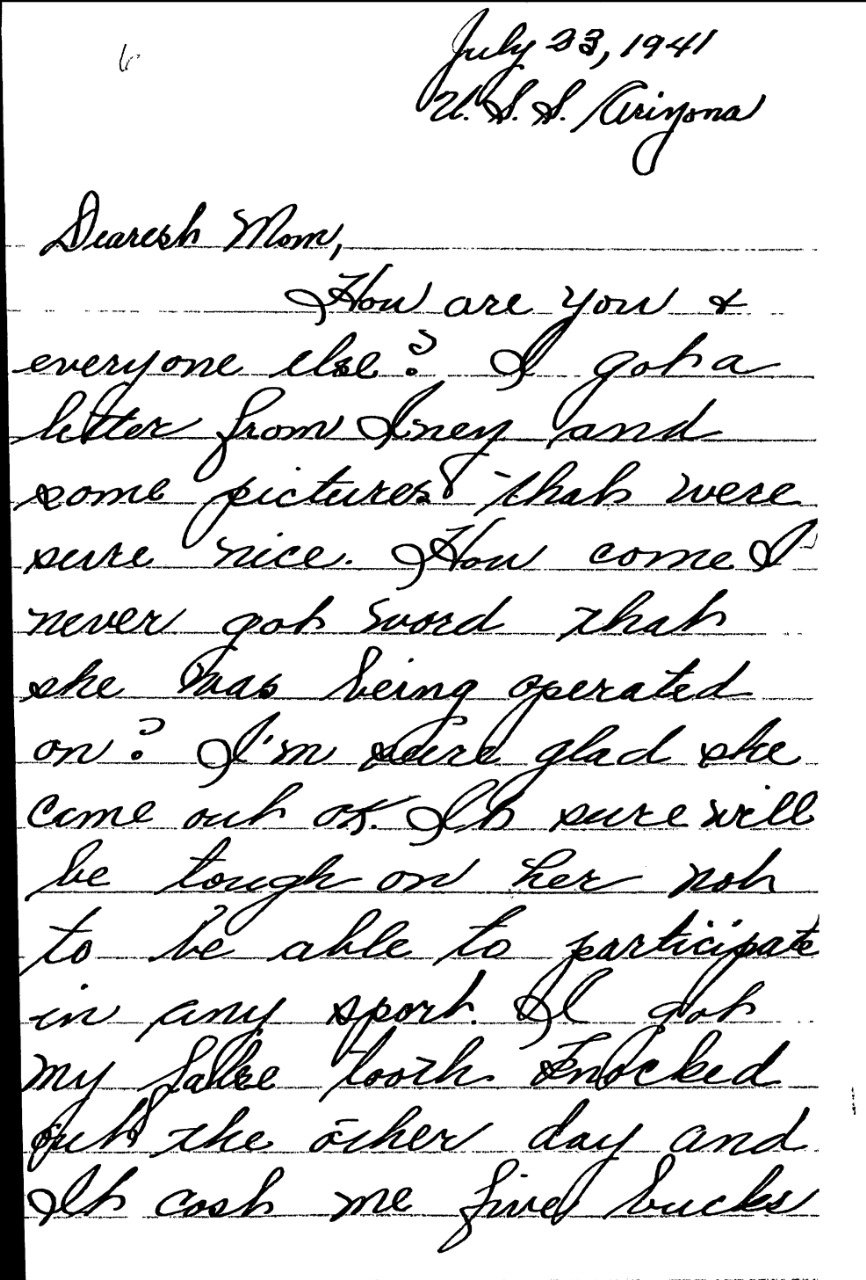 6
July 23, 1941
U.S.S. Arizona
Dearest Mom,
How are you &
everyone else? I got a
letter from Iney and
some pictures that were
sure nice. How come I
never got word that
she was being operated
on? I'm sure glad she
came out ok. It sure will
be tough on her not
to be able to participate
in any sport. I got
my false tooth knocked
out the other day and
It cost me five bucks